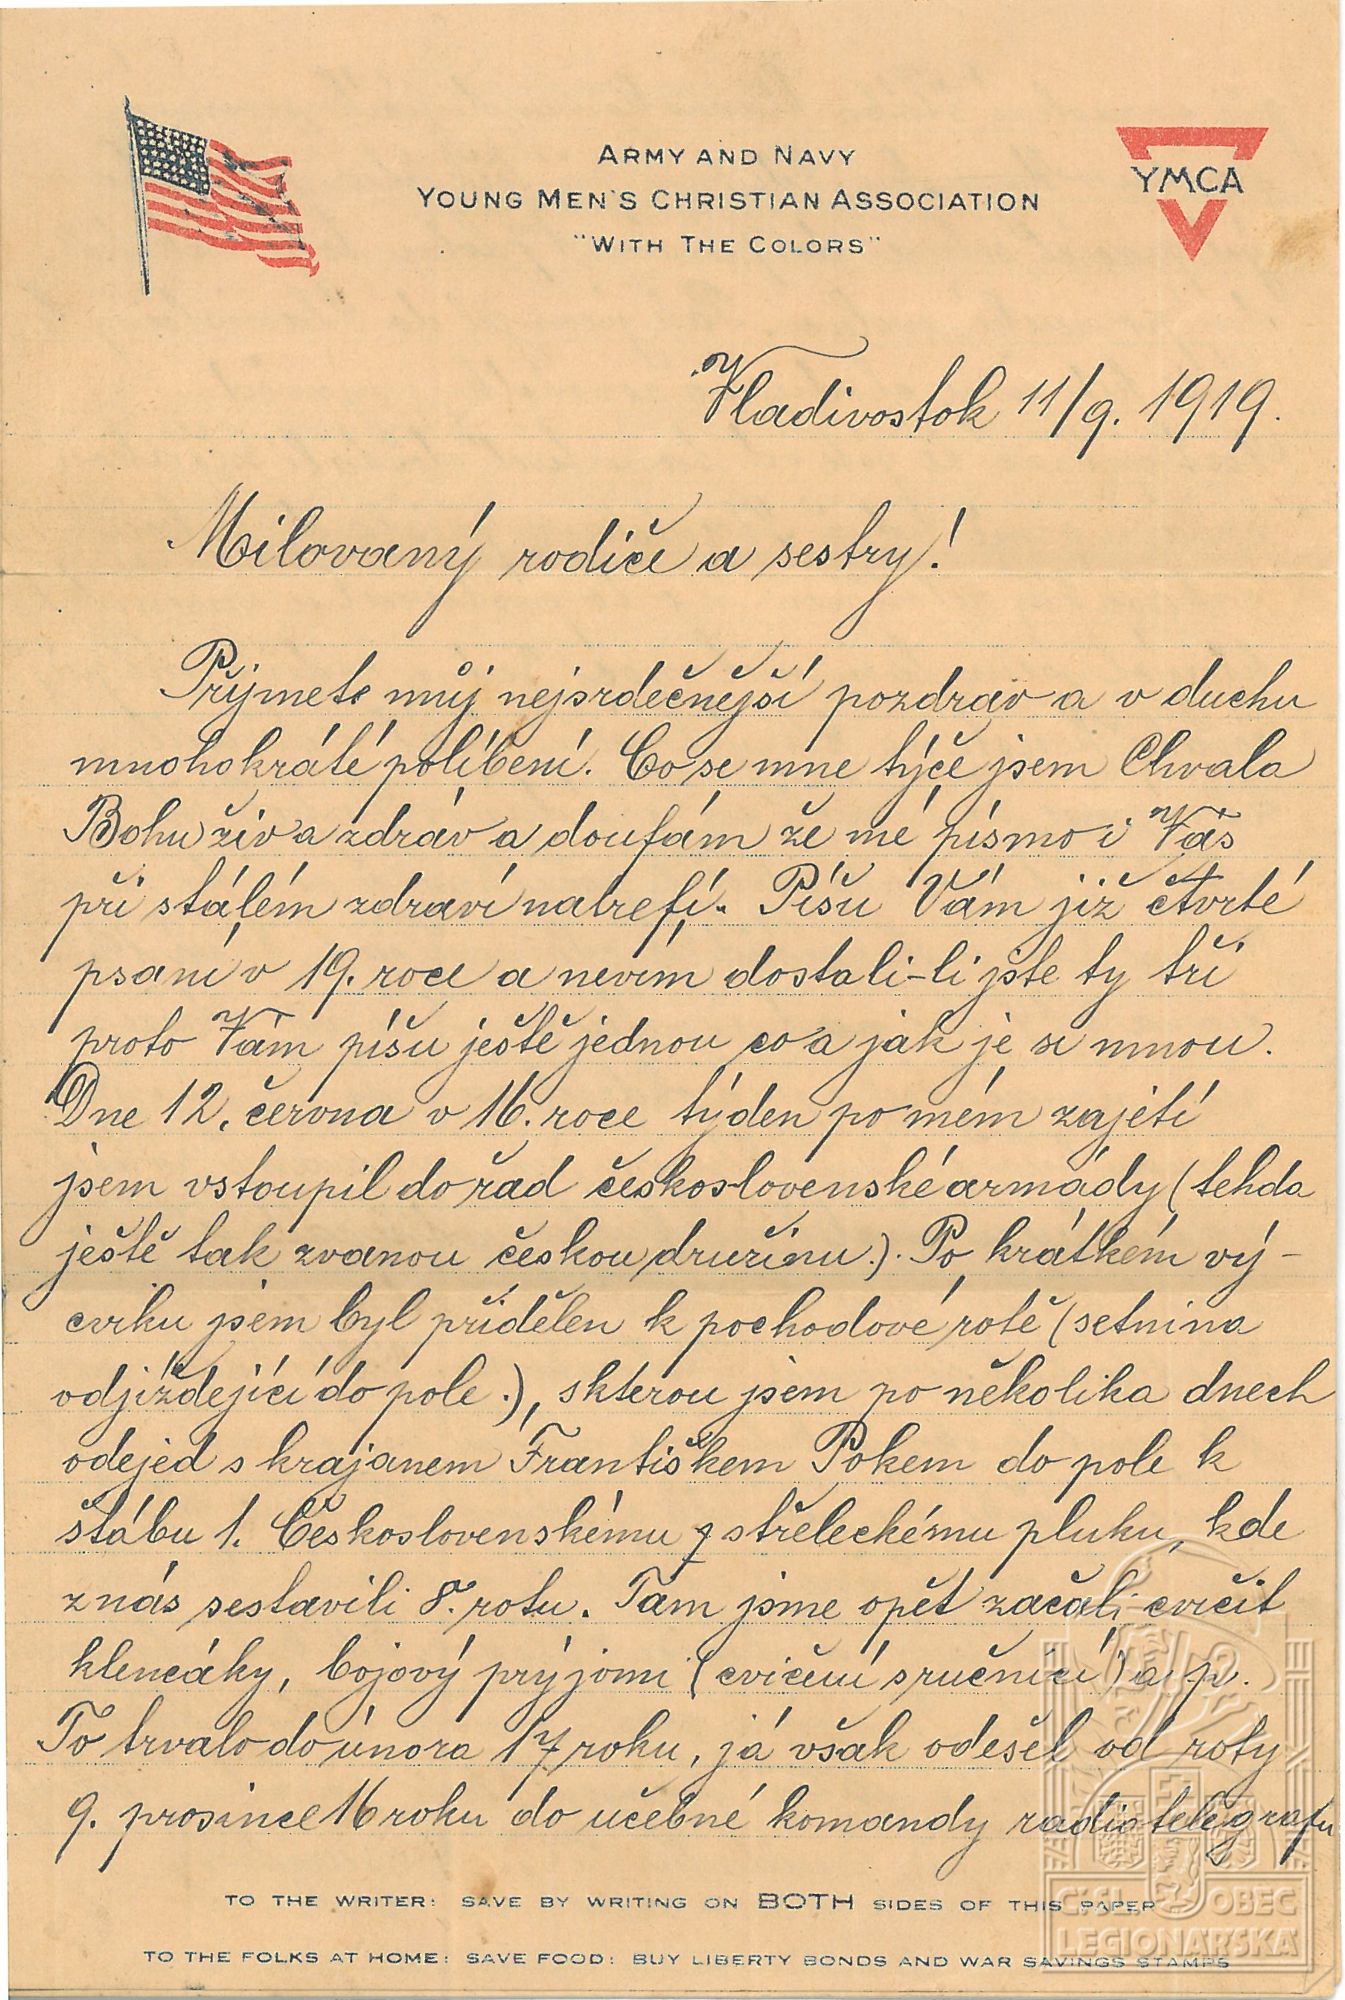 ARMY AND NAVY
YOUNG MEN'S CHRISTIAN ASSOCIATION
"WITH THE COLORS"
YMCA
Vladivostok 11/9. 1919.
Milovaný rodiče a sestry!
Přijmete můj nejsrdečnější pozdrav a v duchu
mnohokráté políbení. Co se mne týče jsem Chvala
Bohu živ a zdráv a doufám že mé písmo i Vás
při stálém zdraví natrefí. Píšu Vám již čtvrté
psaní v 19. roce a nevím dostali-li jste ty tři
proto Vám píšu ještě jednou co a jak je se mnou.
Dne 12. června v 16. roce týden po mém zajetí
jsem vstoupil do řad československé armády (tehda
ještě tak zvanou českou družinu.). Po krátkém vý-
cviku jsem byl přidělen k pochodové rotě (setnina
odjíždející do pole.), skterou jsem po několika dnech
odejed s krajanem Františkem Pokem do pole k
štábu 1. Československému střeleckému pluku, kde
z nás sestavili 8. rotu. Tam jsme opět začali cvičit
klencáky, bojový prýjomi (cvičení s ručnicí) a. p.
To trvalo do února 17 roku, já však odešel od roty
9. prosince 16 roku do učebné komandy radiotelegrafu
TO THE WRITER: SAVE BY WRITING ON BOTH SIDES OF THIS PAPER
TO THE FOLKS AT HOME: SAVE FOOD: BUY LIBERTY BONDS AND WAR SAVINGS STAMPS
Č.SL. OBEC
LEGIONÁŘSKÁ